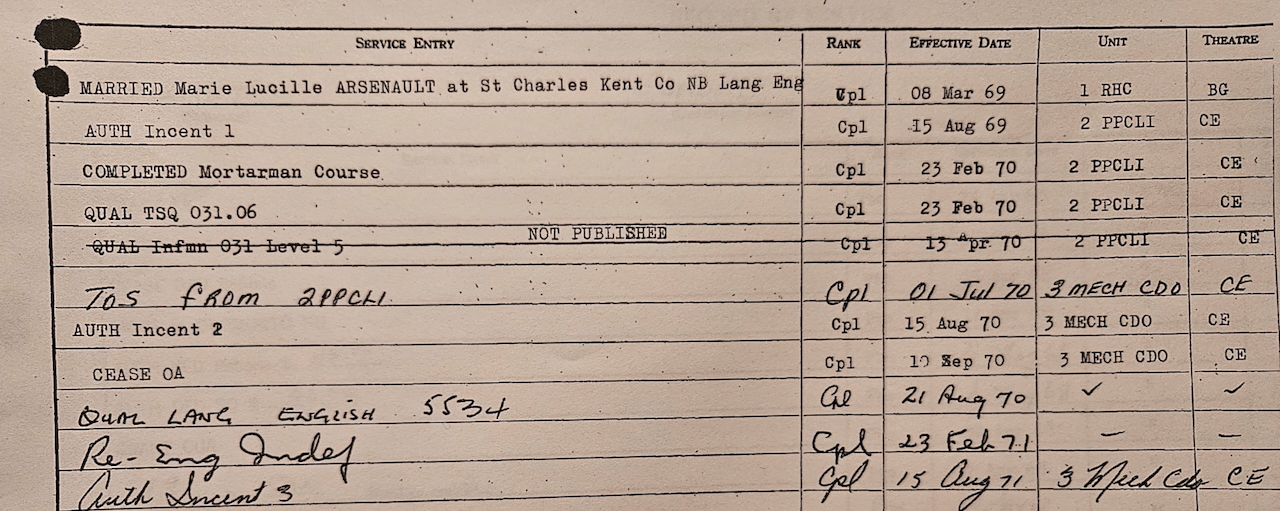 SERVICE ENTRY RANK EFFECTIVE DATE UNIT THEATRE
MARRIED Marie Lucille ARSENAULT at St Charles Kent Co NB Lang Eng Cpl 08 Mar 69 1 RHC BG
AUTH Incent 1 Cpl 15 Aug 69 2 PPCLI CE
COMPLETED Mortarman Course Cpl 23 Feb 70 2 PPCLI CE
QUAL TSQ 031.06 Cpl 23 Feb 70 2 PPCLI CE
QUAL Infmn 031 Level 5 NOT PUBLISHED Cpl 13 Apr 70 2 PPCLI CE
TOS FROM 2PPCLI Cpl 01 Jul 70 3 MECH CDO CE
AUTH Incent 2 Cpl 15 Aug 70 3 MECH CDO CE
CEASE OA Cpl Sep 70 3 MECH CDO CE
QUAL LANG ENGLISH 5534 Cpl 21 Aug 70 ✓ ✓
Re-Eng Indef Cpl 23 Feb 71 — —
Auth Incent 3 Cpl 15 Aug 71 3 Mech Cdo CE